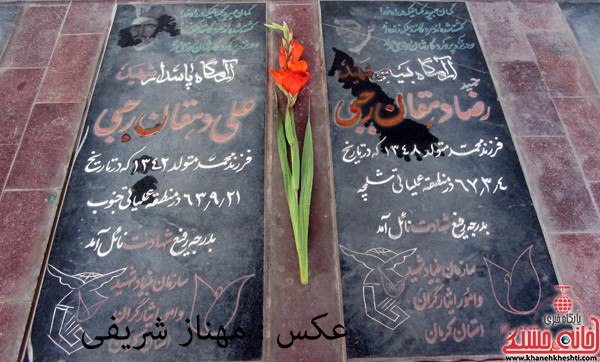 آرامگاه پاسدار شهید
علی دهقان رجبی
فرزند محمد متولد ۱۳۴۲ که در تاریخ
۶۳/۹/۲۱ در منطقه عملیاتی جنوب
بدرجه رفیع شهادت نائل آمد
سازمان بنیاد شهید
و امور ایثارگران
آرامگاه بسیجی شهید
رضا دهقان رجبی
فرزند محمد متولد ۱۳۴۸ که در تاریخ
۶۷/۳/۴ در منطقه عملیاتی شلمچه
بدرجه رفیع شهادت نائل آمد
سازمان بنیاد شهید
و امور ایثارگران
استان کرمان
عکس : مهناز شریفی
پایگاه خبری
خانه خشتی
www.khanehkheshti.com